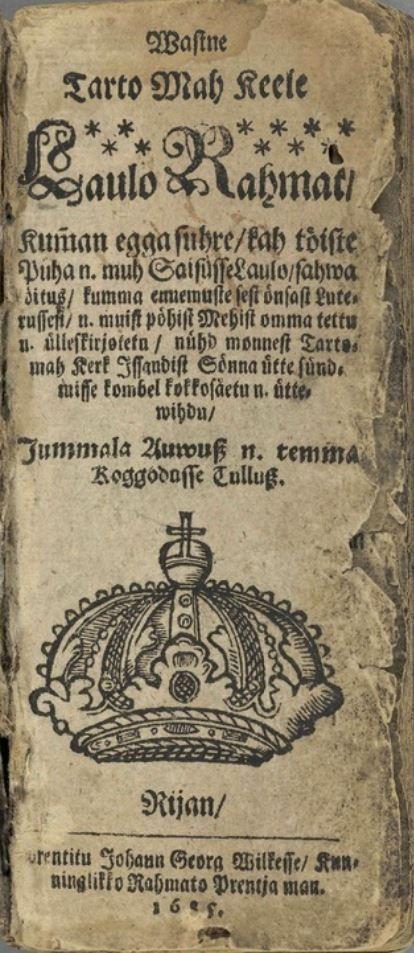 Wastne
Tarto Mah Keele
Laulo Rahmat/
Kum̃an egga suhre/kah töiste
Püha n. muh SaisüsseLaulo/sahwa
öituß/ kumma ennemuste sest önsast Lute-
russest/ n. muist pöhist Mehist omma tettu
n. ülleskirjotetu / nühd monnest Tarto-
mah Kerk Issandist Sönna ütte sünd-
misse kombel kokkosäetu n. ütte-
wihdu/
Jummala Auwuß n. temma
Koggodusse Tulluß.
Rijan/
prentitu Johann Georg Wilkesse/ Kun-
ninglikko Rahmato Prentja man.
1685.